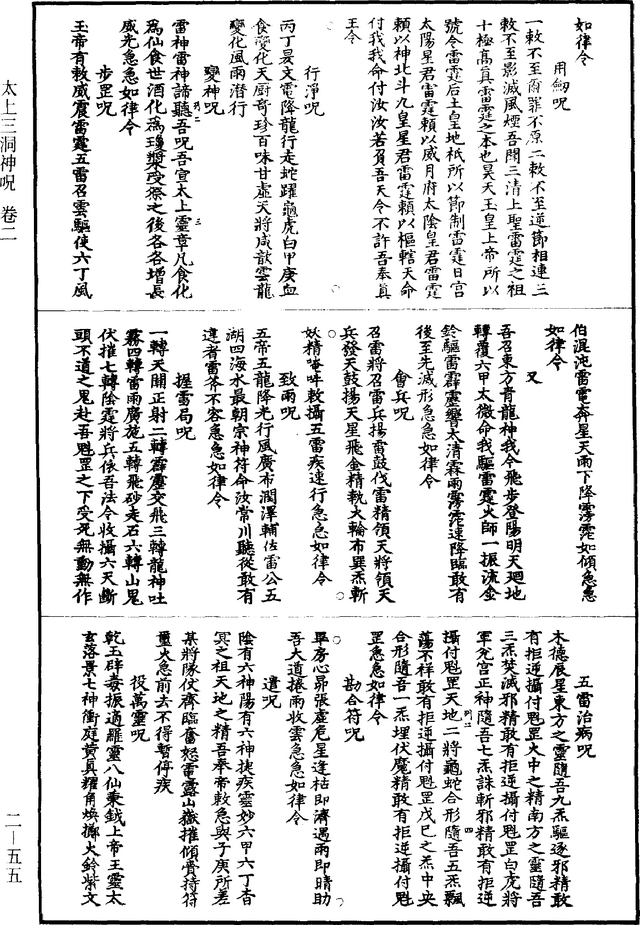 如律令
用劒呪
一敕不至爾罪不原二敕不至逆節相連三
敕不至影滅風煙吾聞三清上聖雷霆之祖
十極高真雷霆之本也昊天玉皇上帝所以
號令雷霆后土皇地祇所以節制雷霆日宮
太陽星君雷霆賴以威月府太陰皇君雷霆
賴以神北斗九皇星君雷霆賴以樞轄天命
付我我命付汝汝若負吾天令不許吾奉真
王令
行淨呪
丙丁炅文電降龍行走蛇躍龜虎白甲庚血
食變化天厨奇珍百味甘虛天將咸歆雲龍
變化風雨潛行
變神呪
雷神雷神諦聽吾呪吾宣太上靈章凡食化
為仙食世酒化為瓊漿受祭之後各各增長
威光急急如律令
步罡呪
玉帝有敕威震雷霆五雷召雲驅使六丁風
伯混沌雷電奔星天雨下降霶霈如傾急急
如律令
又
吾召東方青龍神我今飛步登陽明天廻地
轉覆六甲太微命我驅雷霆火師一振流金
鈴驅雷霹靂響太清霖雨霶霈速降臨敢有
後至先滅形急急如律令
會兵呪
召雷將召雷兵揚雷鼓伐雷精領天將領天
兵發天鼓揚天星飛金精執火輪布巽炁斬
妖精唵吽敕攝五雷疾速行急急如律令
致雨呪
五帝五龍降光行風廣布潤澤輔佐雷公五
湖四海水最朝宗神符命汝常川聽從敢有
違者雷斧不容急急如律令
握雷局呪
一轉天關正射二轉霹靂交飛三轉龍神吐
霧四轉雷雨廣施五轉飛砂走石六轉山鬼
伏摧七轉陰霆將兵依吾法令收攝六天斷
頭不道之鬼赴吾魁罡之下受死無動無作
五雷治病呪
木德辰星東方之靈隨吾九炁驅逐邪精敢
有拒逆攝付魁罡火中之精南方之靈隨吾
三炁焚滅邪精敢有拒逆攝付魁罡白虎將
軍兊宮正神隨吾七炁誅斬邪精敢有拒逆
攝付魁罡天地二將龜蛇合形隨吾五炁飄
蕩不祥敢有拒逆攝付魁罡戊巳之炁中央
合形隨吾一炁埋伏魔精敢有拒逆攝付魁
罡急急如律令
勘合符呪
畢房心昴張虛危星逢枯即濟遇雨即晴助
吾大道捲雨收雲急急如律令
遣呪
陰有六神陽有六神捷疾靈妙六甲六丁杳
冥之祖天地之精吾奉帝敕急與子庚所差
某將隊仗齊臨奮怒電露山嶽摧傾賫持符
量火急前去不得暫停疾
役萬靈呪
乾玉辟毒振適羅靈八仙秉鉞上帝王靈太
玄落景七神衝庭黃真耀角煥擲火鈴紫文
太上三洞神呪　卷二
二—五五